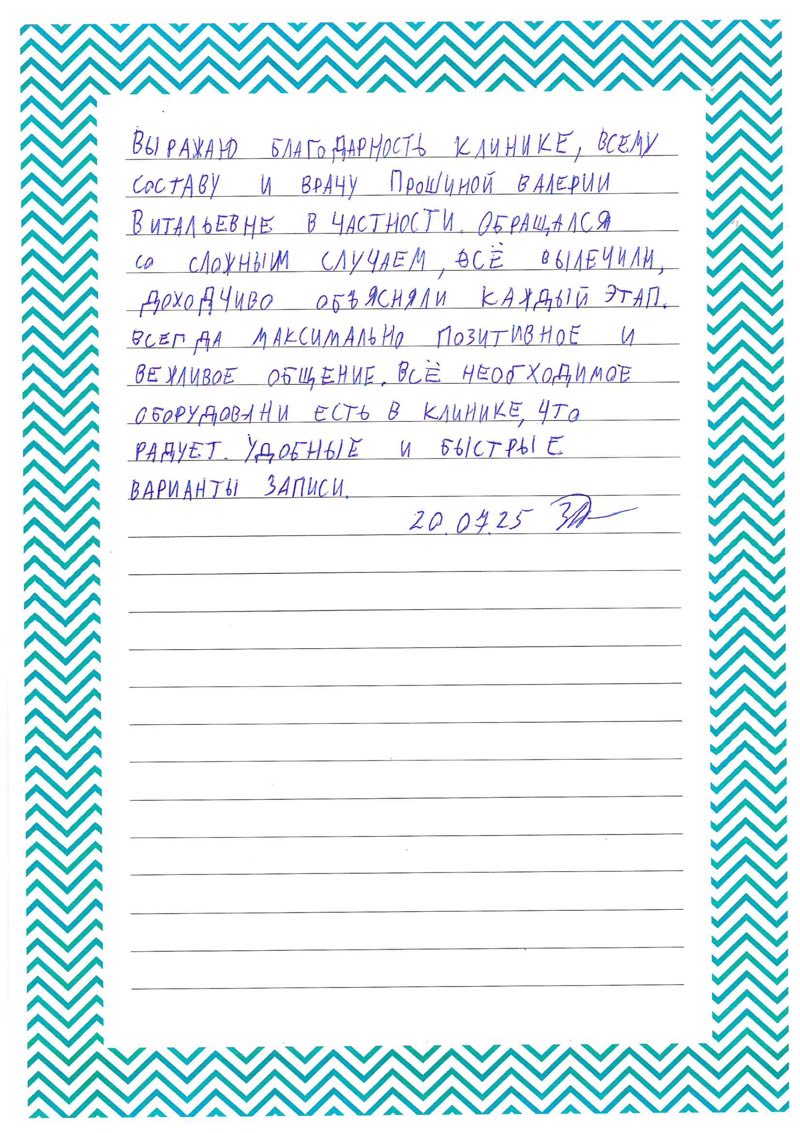 Выражаю благодарность клинике, всему
составу и врачу Прошиной Валерии
Витальевне в частности. Обращался
со сложным случаем, всё вылечили,
доходчиво объясняли каждый этап.
Всегда максимально позитивное и
вежливое общение. Всё необходимое
оборудовани есть в клинике, что
радует. Удобные и быстрые
варианты записи.
20.07.25